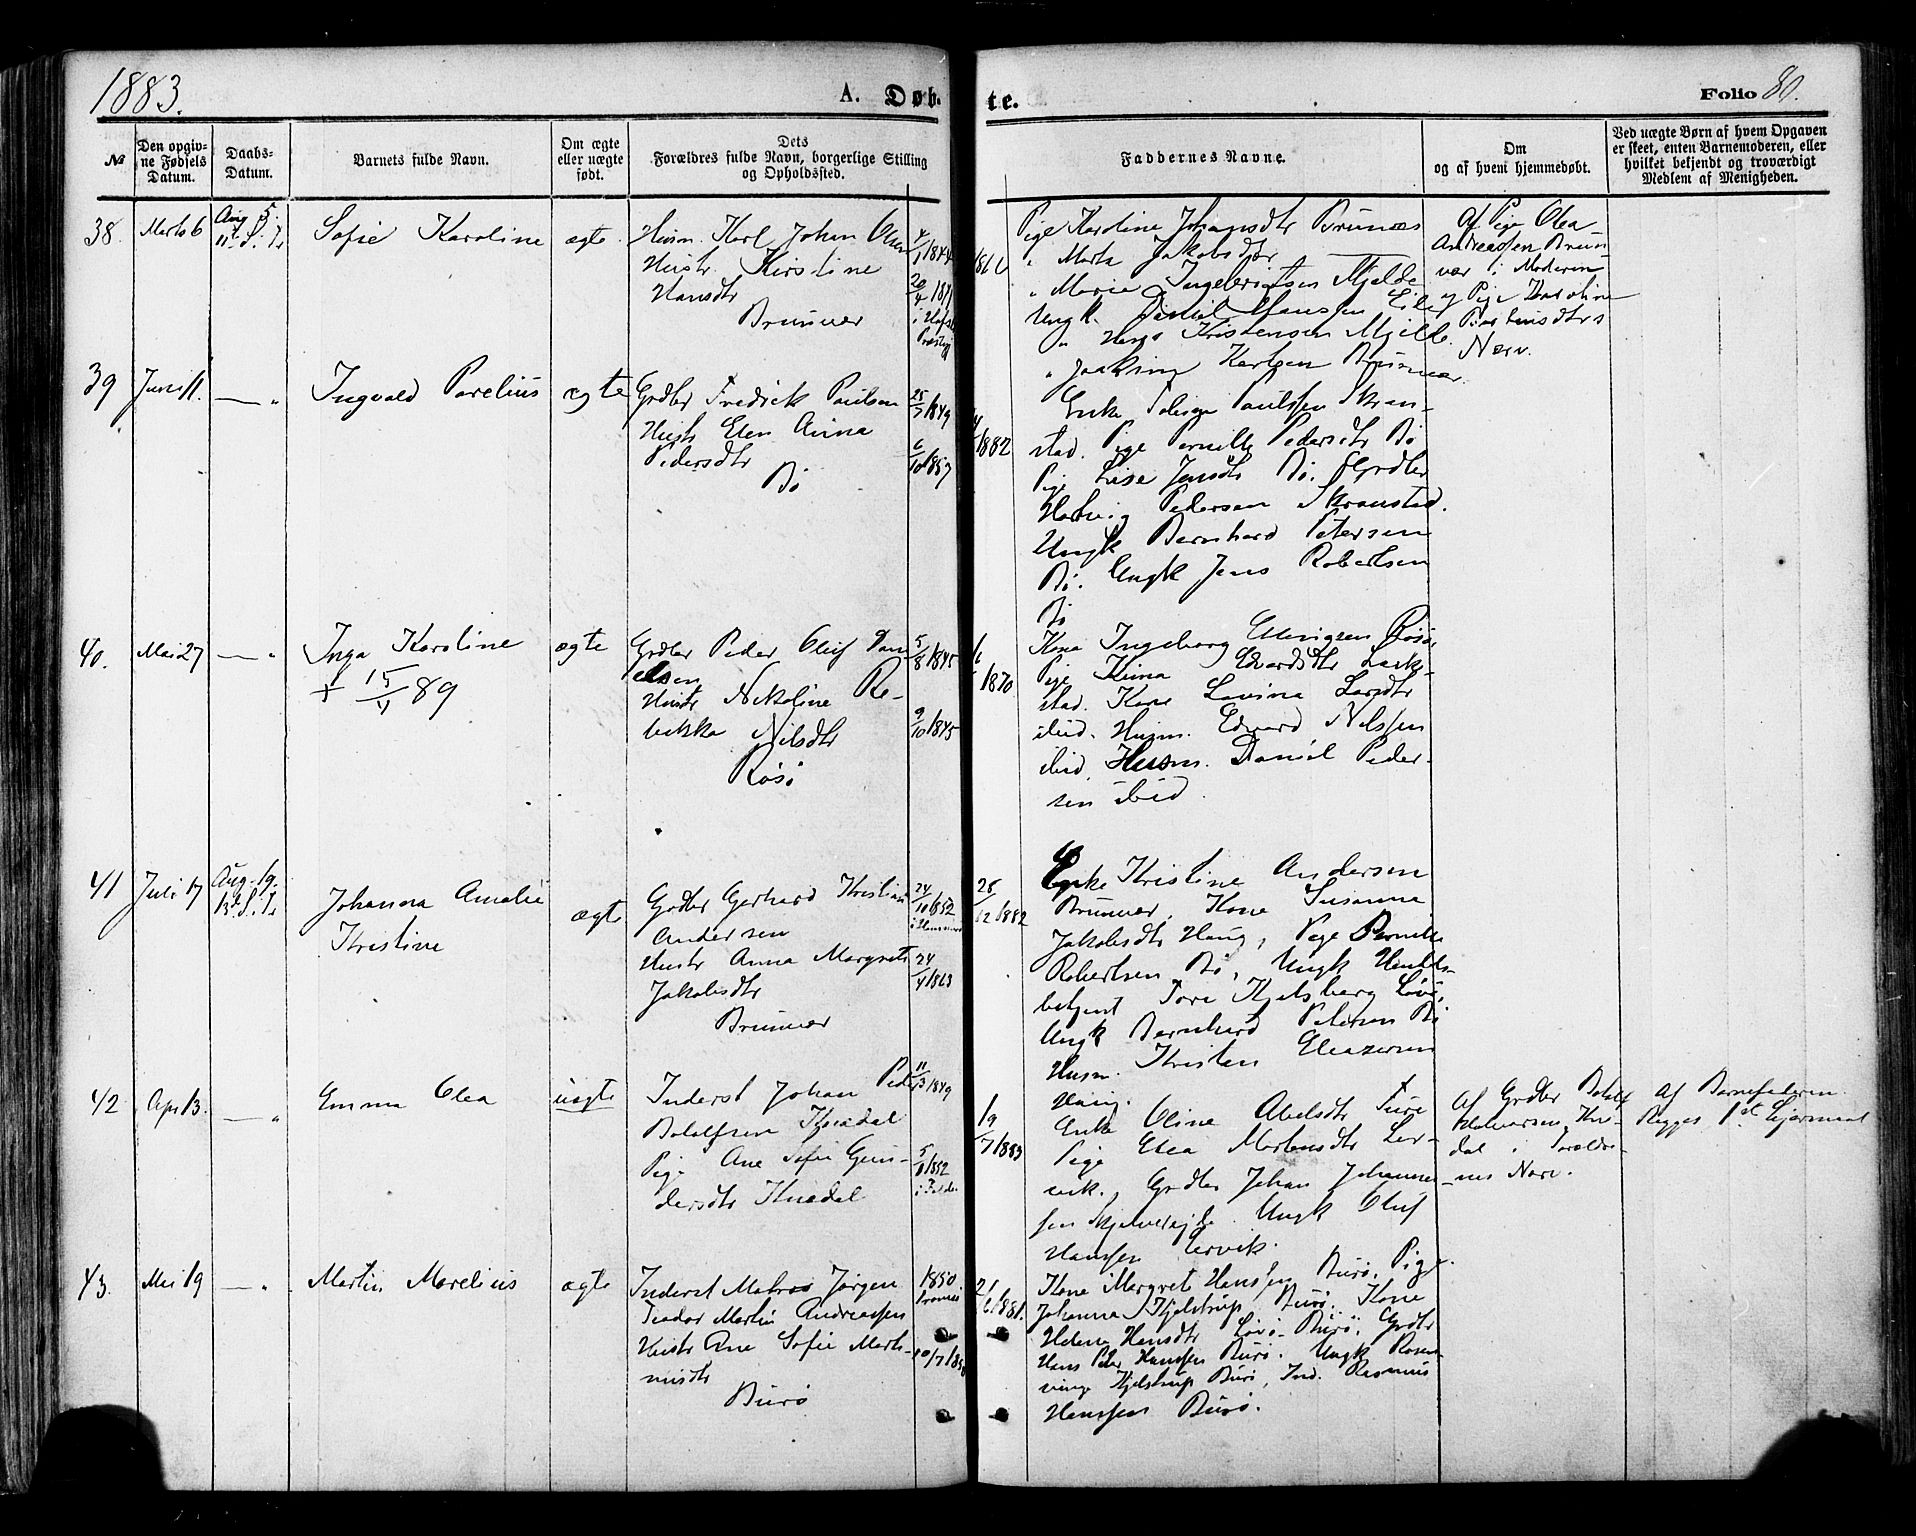 1883.
A. Døb-
te.
Folio 80.
№
Den opgiv-
ne Fødsels
Datum.
Daabs-
Datum.
Barnets fulde Navn.
Om ægte
eller uægte
født.
Dets
Forældres fulde Navn, borgerlige Stilling
og Opholdssted.
Faddernes Navne.
Om
og af hvem hjemmedøbt.
Ved uægte Børn af hvem Opgaven
er skeet, enten Barnemoderen, eller
hvilket bekjendt og troværdigt
Medlem af Menigheden.
38.
Marts 6
Aug 5.
11te S. Tr
Sofie Karoline
ægte.
Husm. Karl Johan Olsen
Hustr. Kirstine
Hansdtr
Brunvær
Pige Karoline Johansdtr Brunvær
" Marta Jakobsdtr
" Maria Ingebrigtsen Mjelde
Ungk. Daniel Hanssen
" Hans Kristensen Mjelde
" Joakim Karlsen Brunvær.
Af Pige Olea
Andreassen Brun
vær i Moderen
og Pige Karoline
Nærv.
39
Juni 11.
— "
Ingvald Parelius
ægte
Grdbr Fredrik Paulsen
Hustr Elen Anna
Pedersdtr
Bø
25/7 1849
6/10 1857
1882
Enke Paulssen Skran-
stad. Pige Pernille Pedersdtr Bø
Pige Lise Jensdtr Bø. Grdbr
Hartvig Pedersen Skranstad.
Ungk Bernhard Petersen
Bø. Ungk Jens Robertsen
Bø
40.
Mai 27
— "
Inga Karoline
+ 15/ 89
ægte
Grdbr Peder Oluf Dani
elsen
Hustr Nikoline Re-
bekka Nilsdtr
Røsø
5/8 1845
9/10 1845
1870
Kone Ingeborg Ellingsen Røsø,
Pige Kina Edvardsdtr
stad. Kone Lavina Larsdtr
ibid. Husm. Edvard Nilssen
ibid. Husm. Daniel Peder-
sen ibid.
41
Juli 17
Aug. 19.
13de S. Tr
Johanna Amalie
Kristine
ægte
Grdbr Gerhard Kristian
Andersen
Hustr Anna Margrete
Jakobsdtr
Brunvær
24/10 1852
24/4 1863
28/12 1882
Enke Kristine Andersen
Brunvær, Kone Susanna
Jakobsdtr Haug, Pige Pernille
Robertsen Bø, Ungk Handels-
betjent Tore Kjelsberg Løvø,
Ungk Bernhard Petersen Bø
Husm. Kristen Eleazersen
Haug.
42
Apr 13.
— "
Emma Olea
uægte
Inderst Johan Peder
Bolalfsen Knedal
Pige Ane Sofie Gun-
dersdtr Knedal
11/3 1849
5/8 1852
19/7 1883
Enke Oline Abelsdtr Fure
Pige Elea Martensdtr Ler-
vik, Grdbr Johan Johannes-
sen Skjelvereide. Ungk Oluf
Hanssen Lervik.
Af Grdbr Bolalf
Halvorsen Kne-
dal i Forældre-
nes Nærv.
Af Barnefaderen.
Begges 1ste Leiermaal
43.
Mai 19
— "
Martin Marelius
ægte
Inderst Matros Jørgen
Teodor Martin Andreassen
Hustr Ane Sofie Mart-
insdtr
Burø
1850
Tromsø
10/7 1858
2/6 1881.
Kone Margret Hanssen Burø, Pige
Johanna Kjelstrup Burø. Kone
Helene Hansdtr Løvø-Burø. Grdbr
Hans Peder Hanssen Burø. Ungk Rosen-
vinge Kjelstrup Burø, Ind. Rasmus
Hanssen Burø.